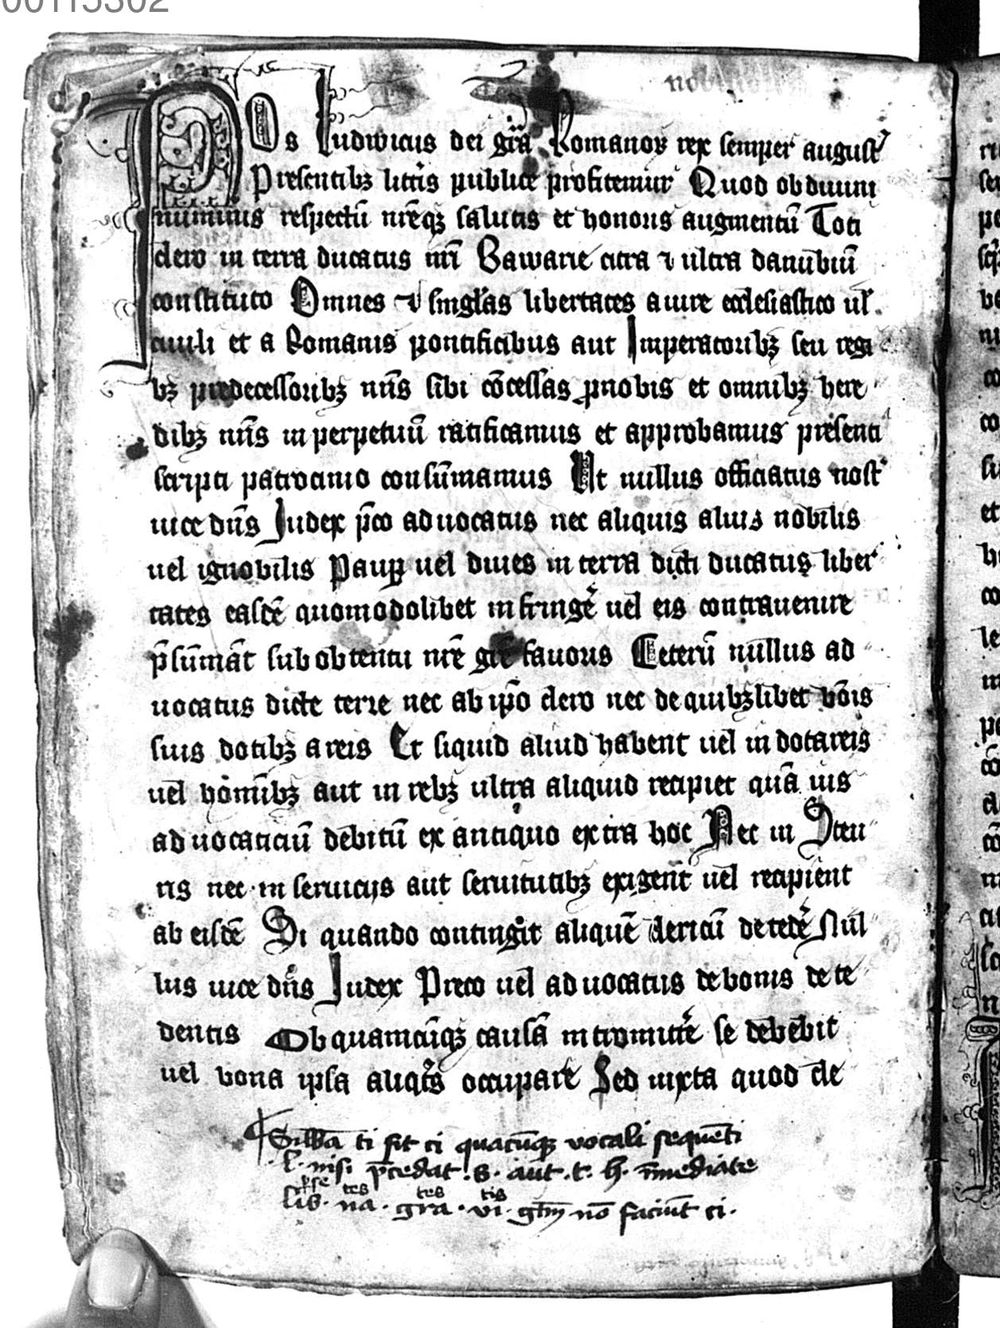 00115302
NOs Ludwicus dei gr̄a Romanoꝝ rex semper august᷑
Presentibꝫ litt̄is publice profitemur Quod ob diuini
numinis respectū nr̄eqꝫ salutis et honoris augmentū Toti
clero in terra ducatus nr̄i Bawarie citra ⁊ ultra danubiū
constituto Omnes ⁊ singl̄as libertates a iure ecclesiastico ul᷑
ciuili et a Romanis pontificibus aut Imperatoribꝫ seu regi
bꝫ predecessoribꝫ nr̄is sibi cōcessas ꝓ nobis et omnibꝫ here
dibꝫ nr̄is in perpetuū ratificamus et approbamus presenti
scripti patrocinio consūmamus Ut nullus officiatus nost᷑
uice dn̄s Judex p̄co aduocatus nec aliquis alius nobilis
uel ignobilis Paup̱ uel diues in terra dicti ducatus liber
tates easdē quomodolibet infringē uel eis contrauenire
p̄sūmāt sub obtentu nr̄e gr̄e fauoris Ceterū nullus ad
uocatus dicte terre nec ab ip̄o clero nec de quibꝫlibet bōis
suis dotibꝫ areis Et siquid aliud habent uel in dotareis
uel homībꝫ aut in rebꝫ ultra aliquid recipiet quā ius
aduocaticiū debitū ex antiquo extra hoc Nec in Steu
ris nec in seruicijs aut seruitutibꝫ exigent uel recipient
ab eisdē Si quando contingit aliquē clericū decedē Nul
lus uice dn̄s Judex Preco uel aduocatus de bonis dece
dentis Ob quamcūqꝫ causā intromittē se debebit
uel bona ipsa aliqͣs occupare Sed iuxta quod de
¶ Sillā ti fit ci quacūqꝫ vocali sequēti
.l. nisi p̄cedat .s. aut .t. h. īmediate